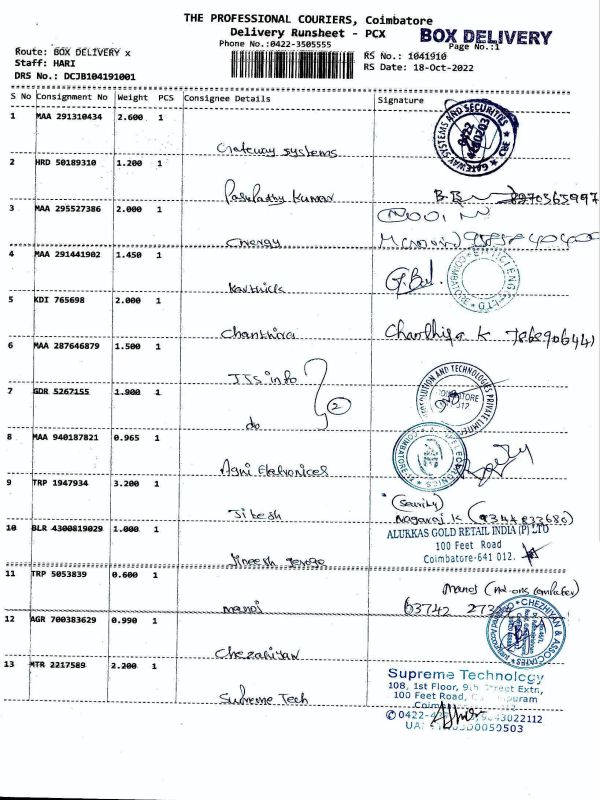 THE PROFESSIONAL COURIERS, Coimbatore
Delivery Runsheet - PCX
BOX DELIVERY
Phone No.:0422-3505555
Page No.:1
Route: BOX DELIVERY x
RS No.: 1041910
Staff: HARI
RS Date: 18-Oct-2022
DRS No.: DCJB104191001
S No Consignment No Weight PCS Consignee Details Signature
1 MAA 291310434 2.600 1
Gateway Systems
GATEWAY SYSTEMS AND SECURITIES
CBE
2 HRD 50189310 1.200 1
Kumar
3 MAA 295527386 2.000 1
Energy
4 MAA 291441902 1.450 1
Karthick
5 KDI 765698 2.000 1
Chanthira
K
6 MAA 287646879 1.500 1
JJs info
2
7 GDR 5267155 1.900 1
do
8 MAA 940187821 0.965 1
Agni Eletronices
9 TRP 1947934 3.200 1
Jitesh
Nagaraj K
10 BLR 4300819029 1.000 1
ALUKKAS GOLD RETAIL INDIA (P) LTD
100 Feet Road
Coimbatore-641 012.
Jineesh
11 TRP 5053839 0.600 1
Manoj
Manoj
63742
12 AGR 700383629 0.990 1
CHEZHIYAN & ASSOCIATES
Chezahiyan
13 MTR 2217589 2.200 1
Supreme Tech
Supreme Technology
108, 1st Floor, 9th Street Extn,
100 Feet Road,